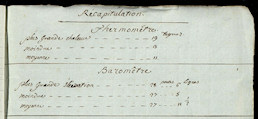 Recapitulation.
Thermomètre.
plus grande chaleur 19 degrés
moindre 3
moyenne 11
Baromètre
plus grande élévation 28 pouces 3 lignes
moindre 27
moyenne 27 11